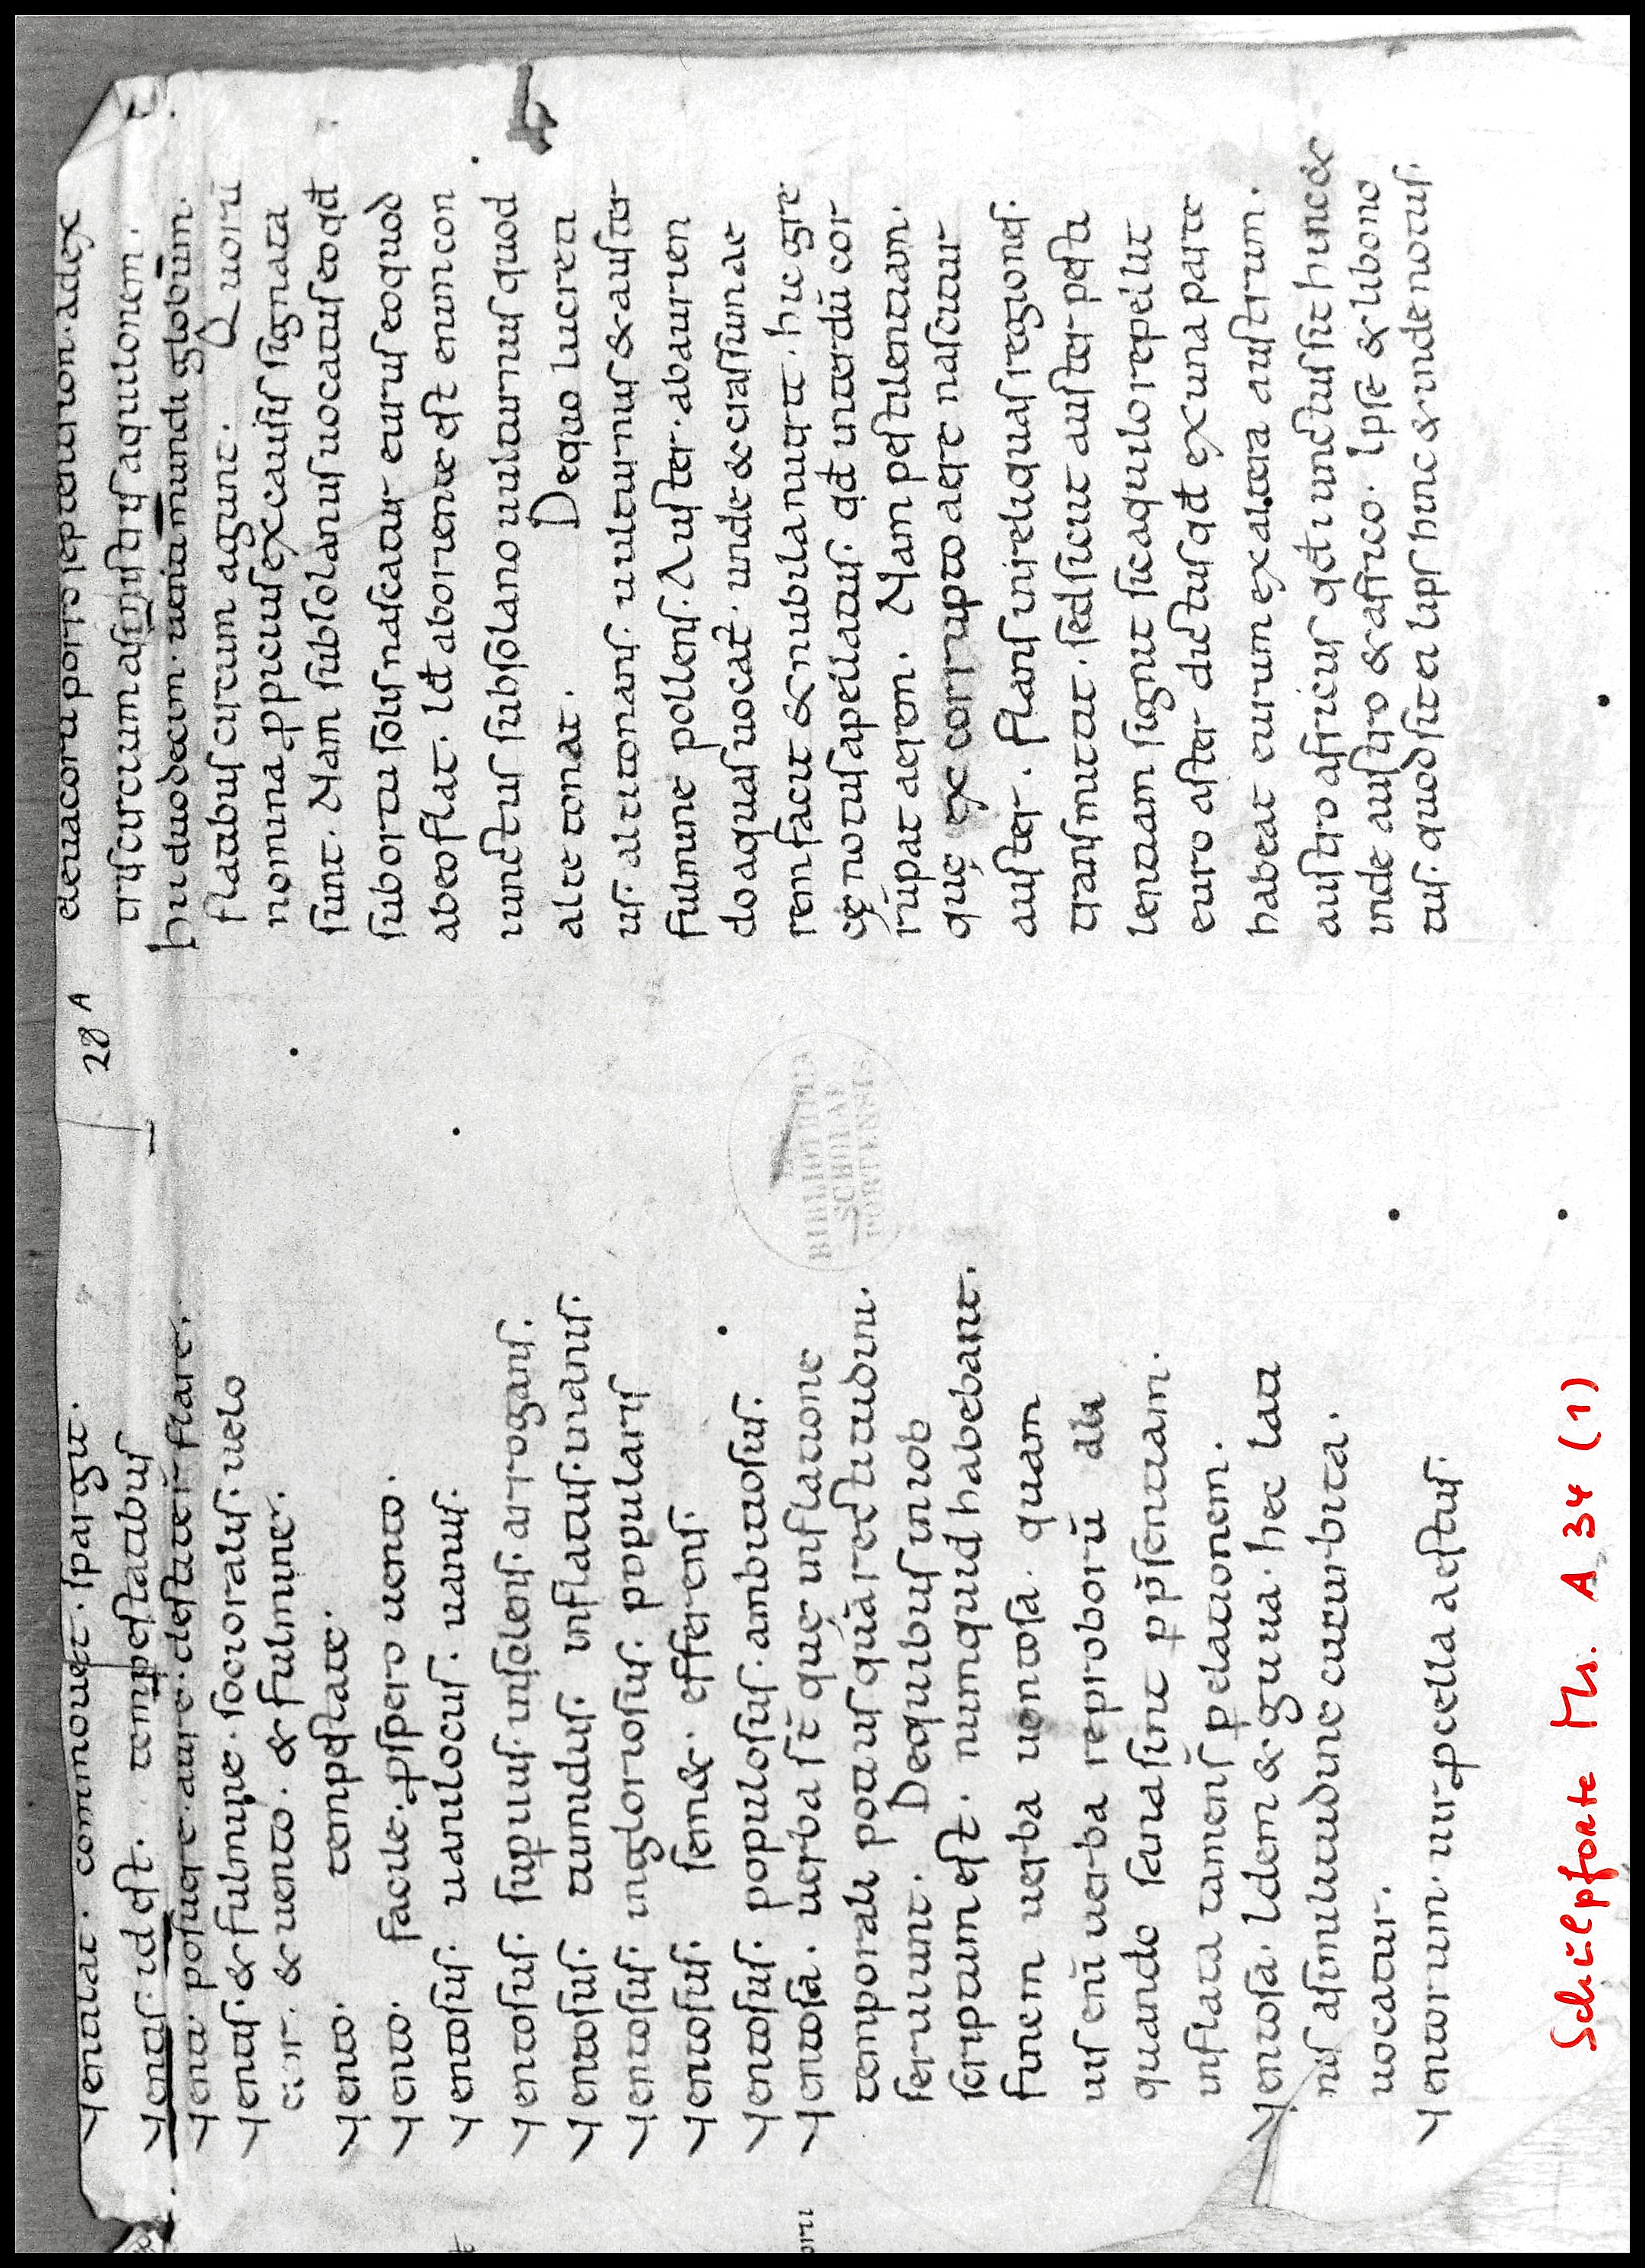 Uentilat. commouet. spargit.
Uentis. id est. tempestatibus
Uenti. posuere. aure. destiter̄ flare.
Uentis. & fulmine. socioralis. uelo
cior. & uento. & fulmine.
Uento. tempestate.
Uento. facile. ꝓspero uento.
Uentosus. uanilocus. uanus.
Uentosus. suꝑuus. insolens. arrogans.
Uentosus. tumidus. inflatus. inanis.
Uentosus. ingloriosus. popularis
Uentosus. sem&. efferens.
Uentosus. populosus. ambitiosus.
Uentosa. uerba st̄ quę inflatione
temporali potius quā rectitudini.
seruiunt. Dequibus iniob
scriptum est. numquid habebant.
finem uerba uentosa. quam
uis eni̅ uerba reproborū ali
quando sana sint ꝑ p̄sentiam.
inflata tamens̄ ꝑ elationem.
Uentosa. Idem & guua. hec lati
nis asimilitudine cucurbita.
uocatur.
Uentorum. uir ꝓcella aestus.
28 A
eteuacoru porro septentrion. adex
tris circium asinistris aquilonem.
hii duodecim. uenti mundi globūm.
flatibus circum agunt. Quorū
nomina ꝓpicius excausis signata
sunt. Nam subsolanus uocatus eo qđ
subortu solis nascatur eurus eoquod
abeoflat. Iđ aboriente est enim con
iunctus subsolano uulturnus quod
alte tonat. Dequo lucreti
us. altitonans. uulturnus & auster
fulmine pollens. Auster. abaurien
do aquas uocat̄. unde & crassum ae
rem facit & nubila nutrit. hic gre
cę notus apellatus. qđ interdū cor
rūpat aerem. Nam pestilentiam.
quę ex corrupto aere nascitur
auster. flans inreliquas regiones.
transmittit. sed sicut auster pesti
lentiam signit sic aquilo repellit
euro aster dictus qđ ex una parte
habeat eurum ex altera austrum.
austro africus qđ iunctus sit hinc &
inde austro & africo. Ipse & libono
tus. quod sit ei lips hinc & inde notus.
BIBLIOTHEK
SCHOLAE
PORTENSIS
Schulpforte Ms. A 34 (1)